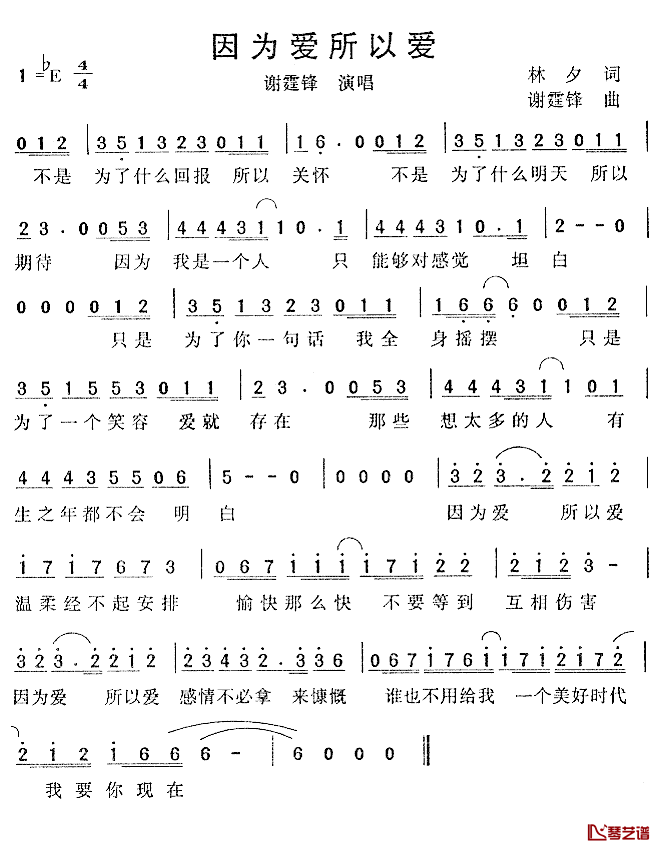 因为爱所以爱
1=♭E 4/4
谢霆锋 演唱
林夕 词
谢霆锋 曲
0 1 2 | 3 5 1 3 2 3 0 1 1 | 1 6 · 0 0 1 2 | 3 5 1 3 2 3 0 1 1 |
不是 为了什么回报 所以 关怀 不是 为了什么明天 所以
2 3 · 0 0 5 3 | 4 4 4 3 1 1 0 · 1 | 4 4 4 3 1 0 · 1 | 2 - - 0 |
期待 因为 我是一个人 只 能够对感觉 坦白
0 0 0 0 1 2 | 3 5 1 3 2 3 0 1 1 | 1 6 6 6 0 0 1 2 |
只是 为了你一句话 我全 身摇摆 只是
3 5 1 5 5 3 0 1 1 | 2 3 · 0 0 5 3 | 4 4 4 3 1 1 0 1 |
为了一个笑容 爱就 存在 那些 想太多的人 有
4 4 4 3 5 5 0 6 | 5 - - 0 | 0 0 0 0 | 3 2 3 · 2 2 1 2 |
生之年都不会 明白 因为爱 所以爱
1 7 1 7 6 7 3 | 0 6 7 1 1 1 1 7 1 2 2 | 2 1 2 3 - |
温柔经不起安排 愉快那么快 不要等到 互相伤害
3 2 3 · 2 2 1 2 | 2 3 4 3 2 · 3 3 6 | 0 6 7 1 7 6 1 7 1 2 1 7 2 |
因为爱 所以爱 感情不必拿 来慷慨 谁也不用给我 一个美好时代
2 1 2 1 6 6 6 - | 6 0 0 0 ‖
我要你现在
琴艺谱